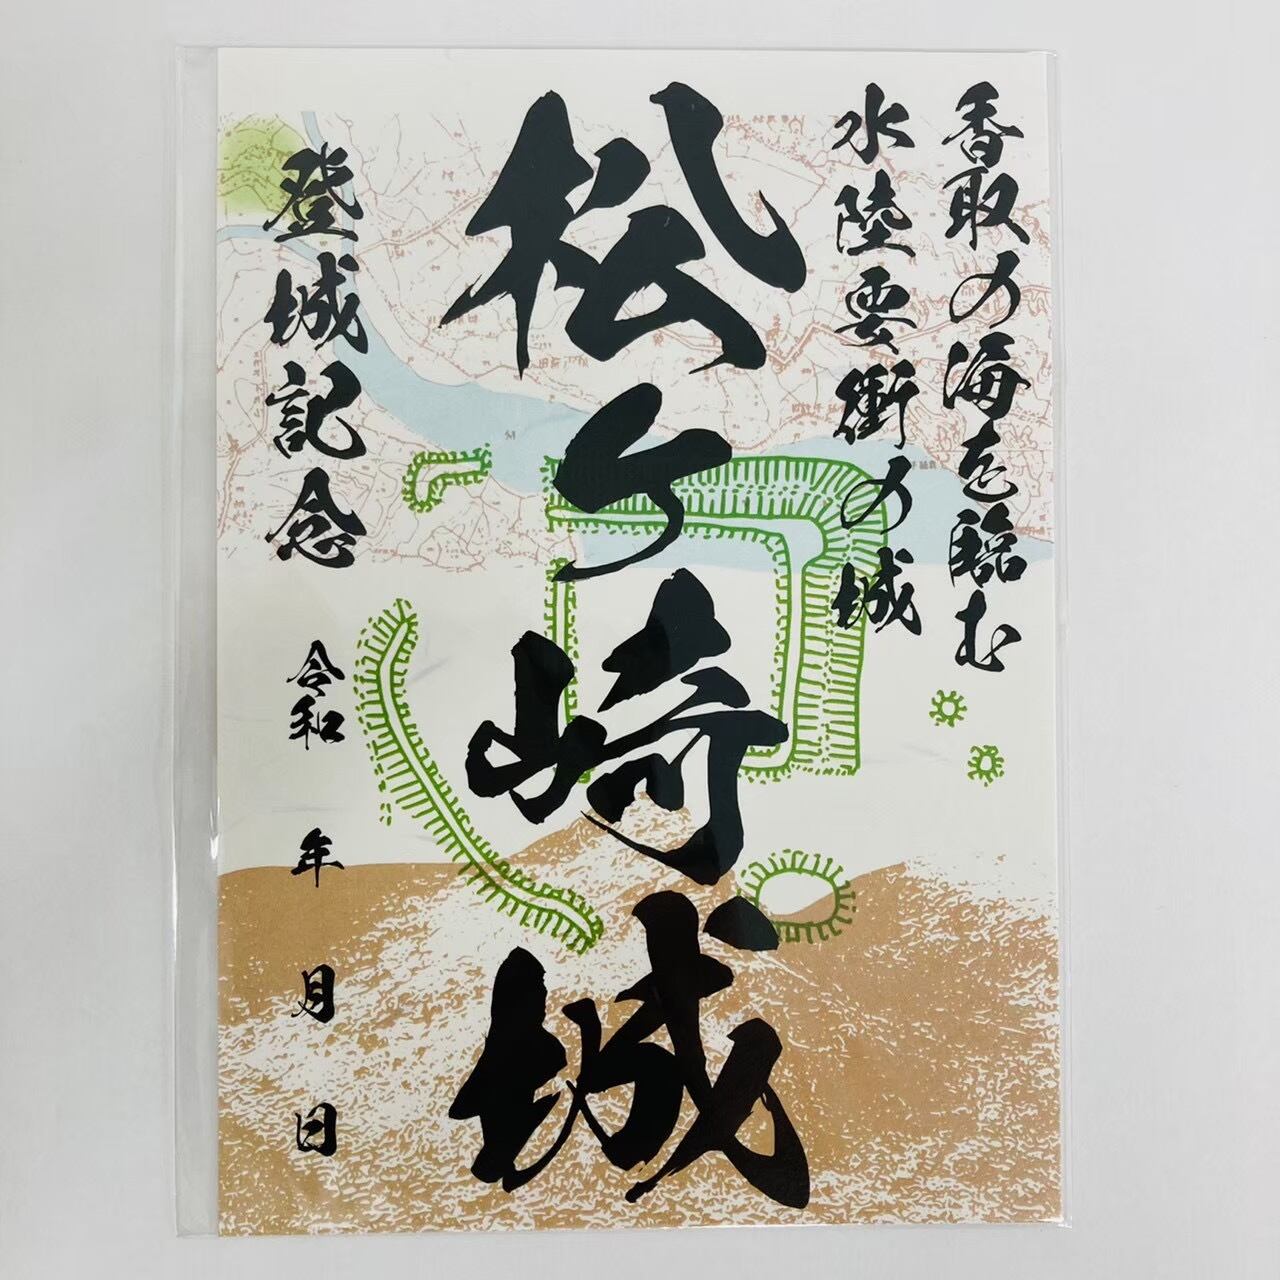 香取の海を臨む
水陸要衝の城
松ヶ崎城
登城記念
令和 年 月 日